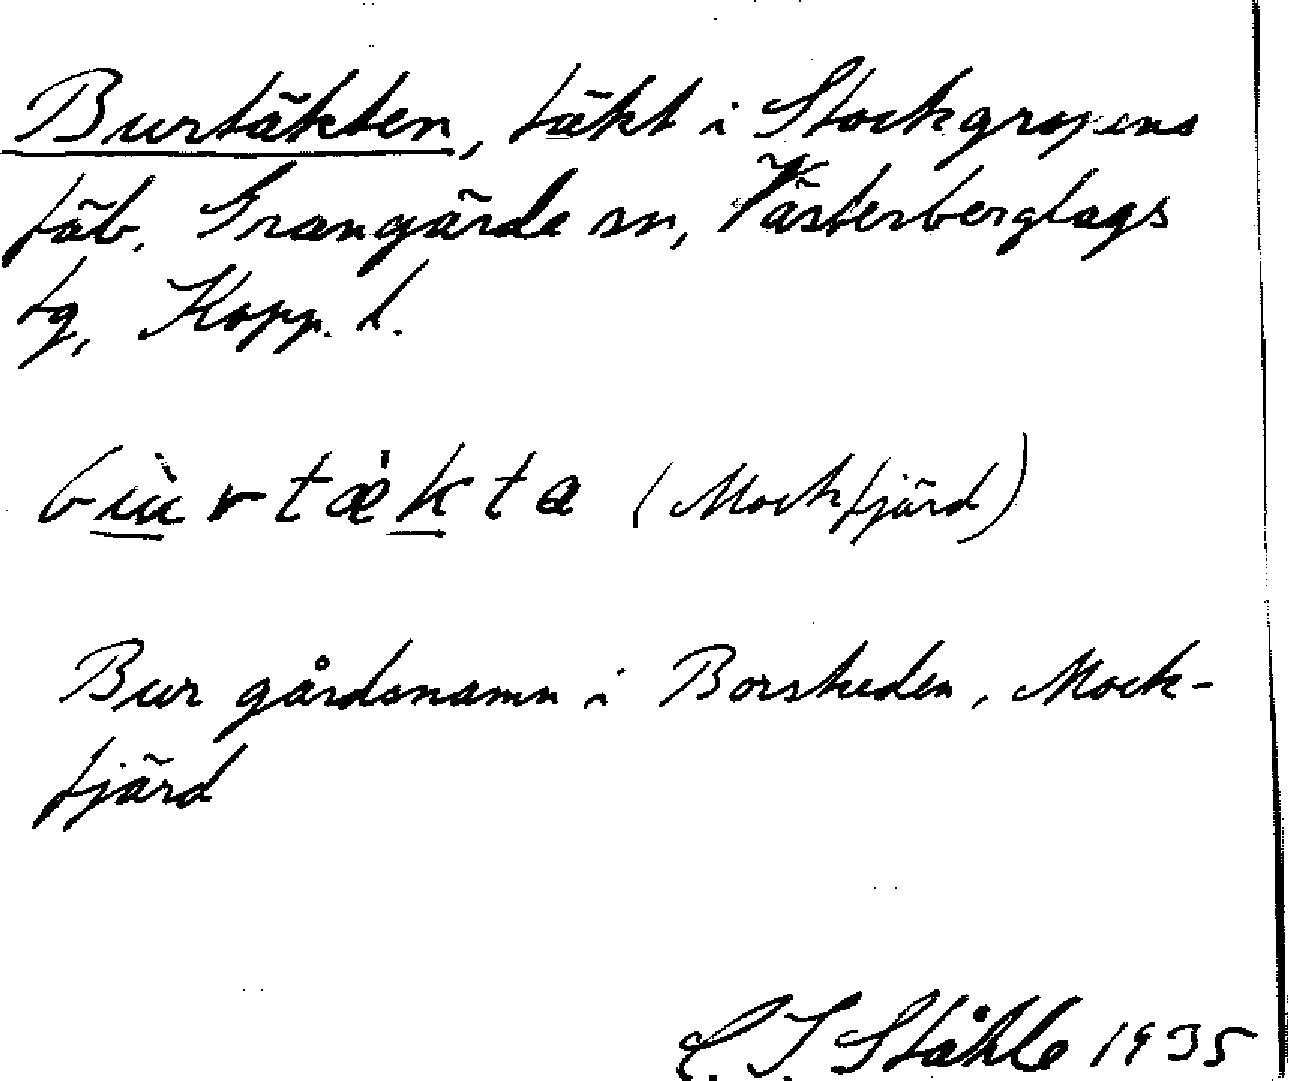 Burtäkten, täkt i Stockgropens
fäb. Grangärde sn, Västerberglags
tg, Kopp. l.
bùrtæ̀kta (Mockfjärd)
Bur gårdsnamn i Borsheden, Mock-
fjärd
C. I. Ståhle 1935